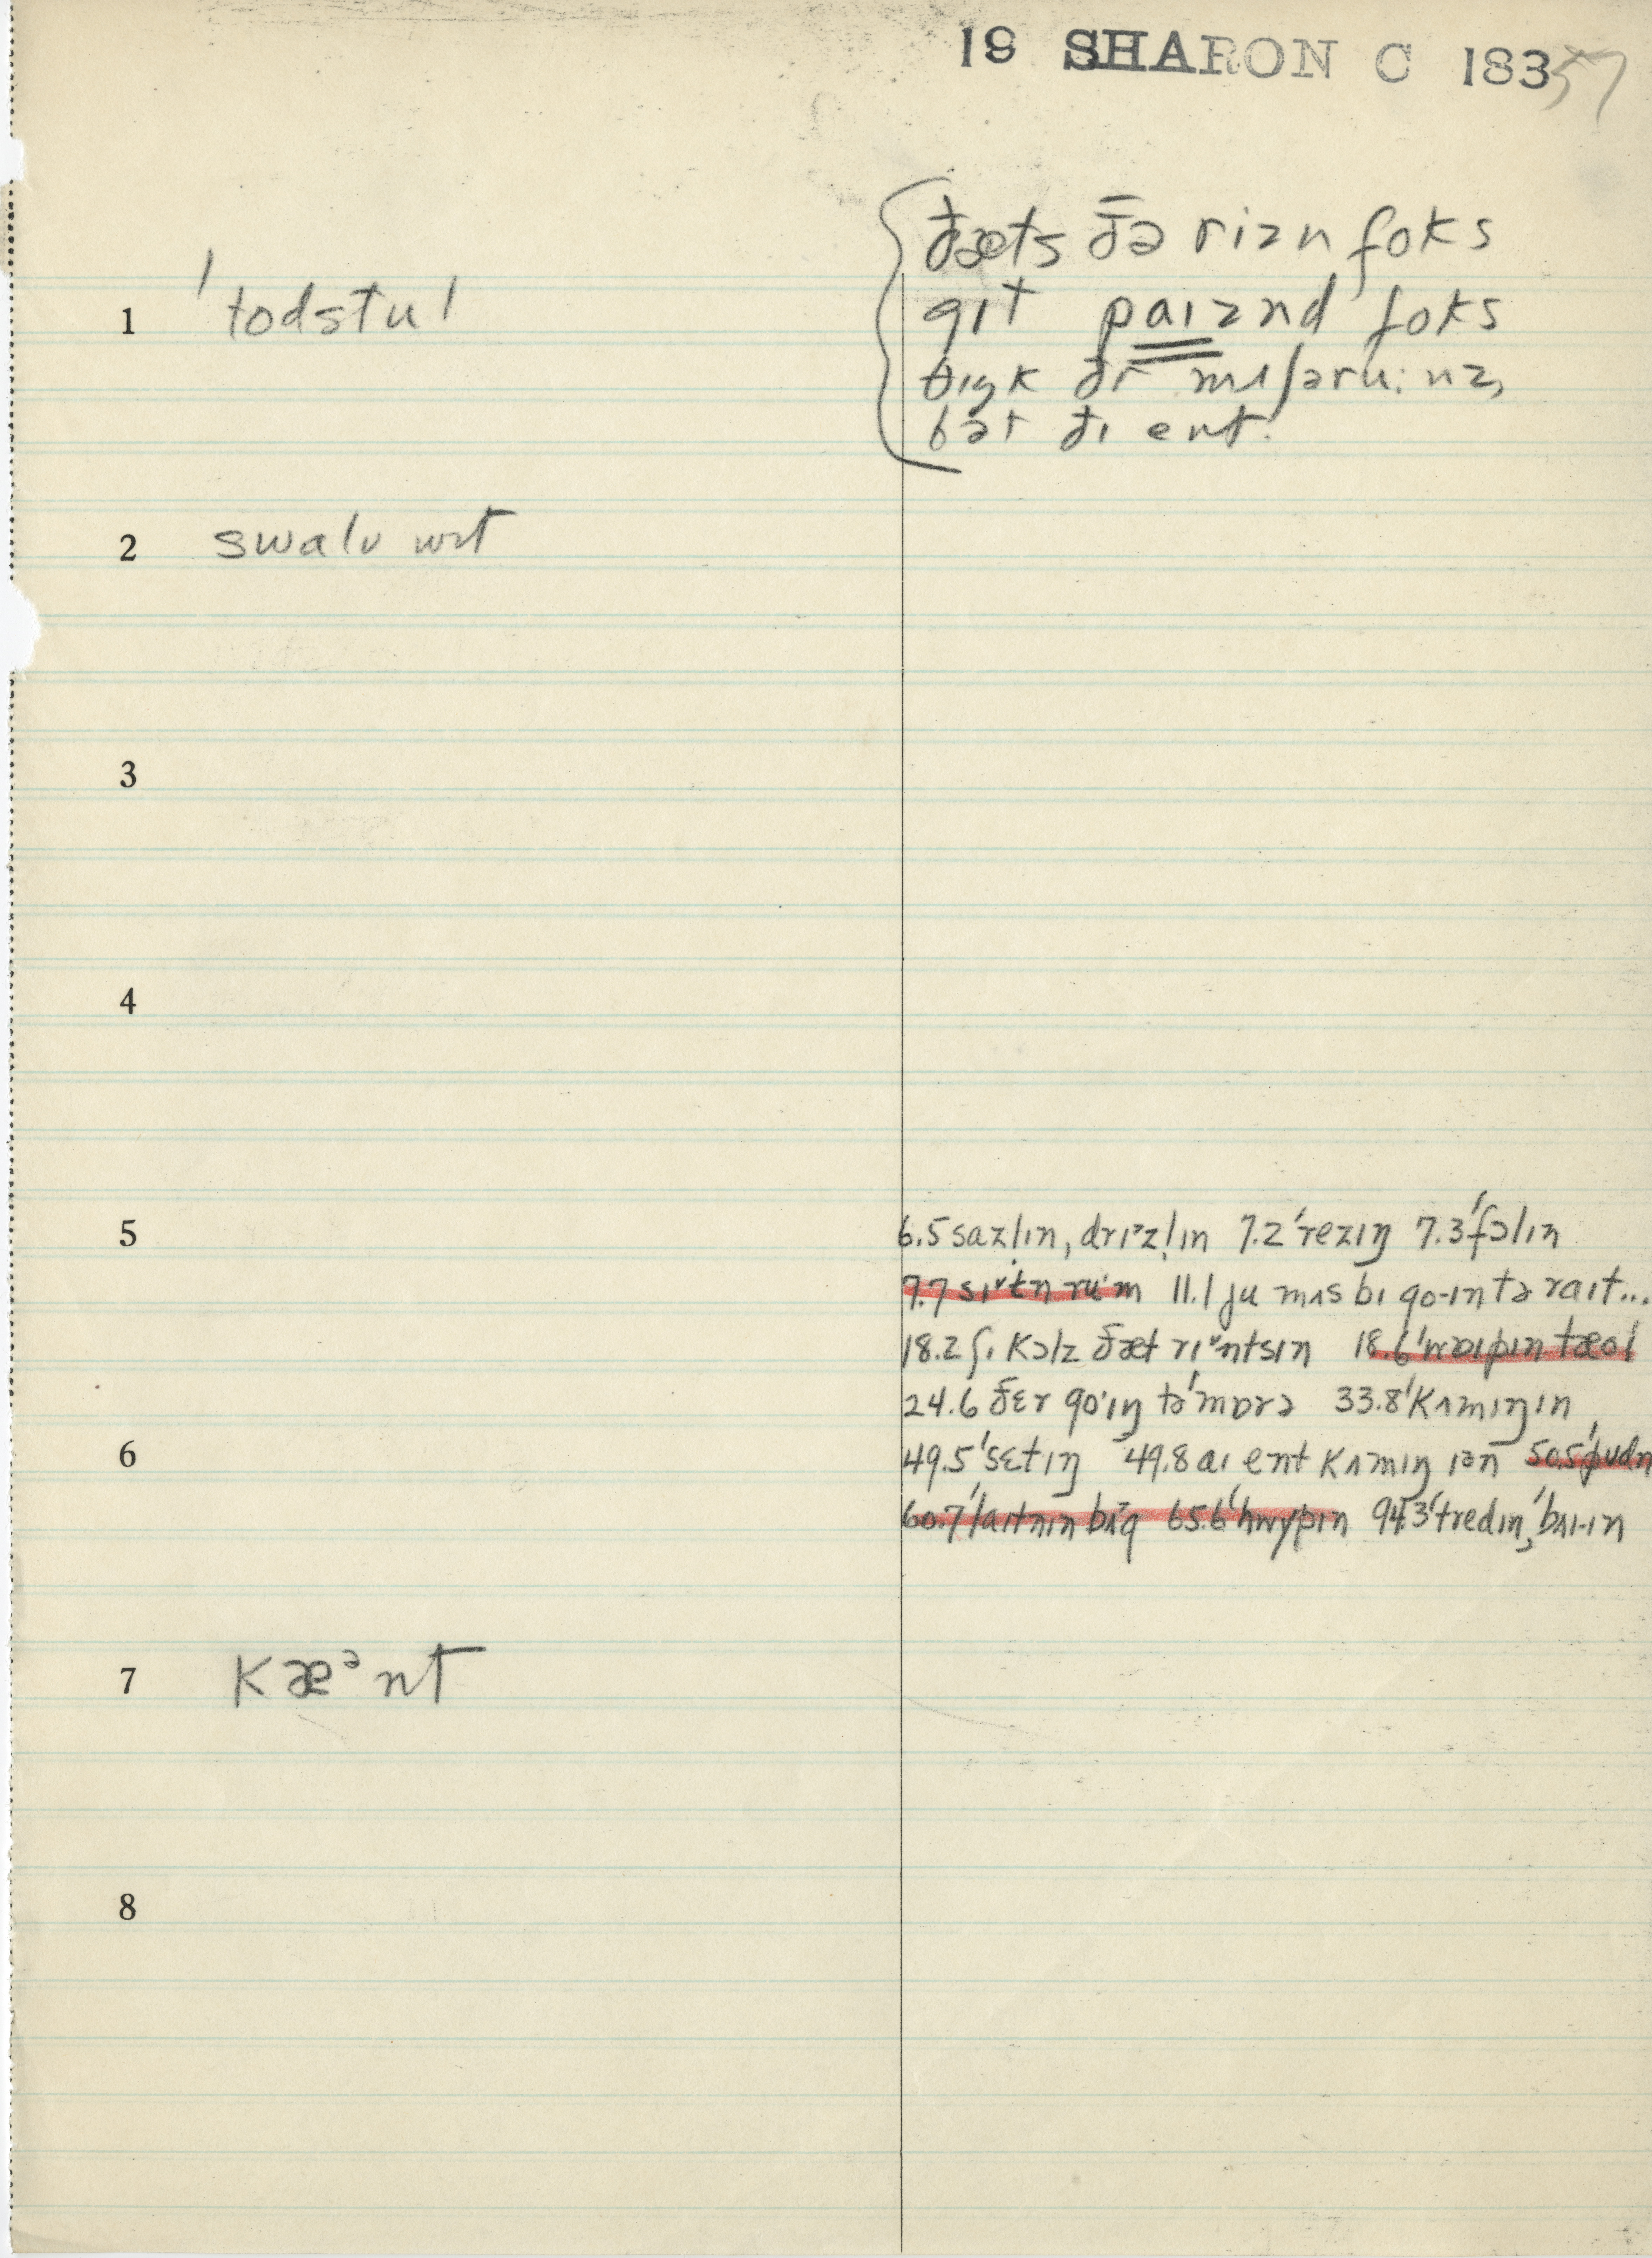 19 SHARON C 183 57
1 ˈtodstul
ðæts ðə rizn foks
gɪt paɪznd foks
θɪŋk ðr mʌʃəru:nz,
bət ðɪ ent.
2 swalʊ ɪt
3
4
5
6.5 sazlɪn, drɪᵊzlɪn 7.2 ˈrezɪŋ 7.3 ˈfɔlɪn
9.7 sɪtn rum 11.1 ju mʌs bɪ go-ɪn tə raɪt...
18.2 ʃɪ kɔlz ðæt rɪntsɪn 18.6 ˈwaɪpɪn tæol
24.6 ðɛr go·ɪŋ təˈmɒrə 33.8 ˈkʌmɪŋ ɪn
6
49.5 ˈsɛtɪŋ 49.8 aɪ ent kʌmɪŋ ɪən 50.5 ˈpudn
60.7 ˈlaɪtnɪn bʌg 65.6 ˈhwɪpɪn 94.3 ˈtredɪn, ˈbaɪ-ɪn
7 kæᵊnt
8